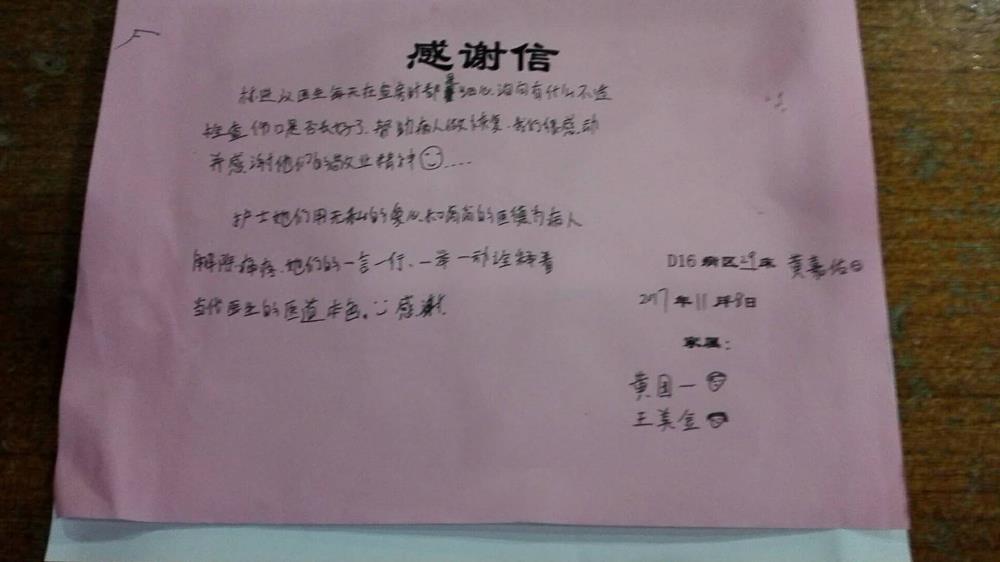 感谢信
林进汉医生每天在查房时都是细心询问有什么不适
检查伤口是否长好了、帮助病人做康复、我们很感动
并感谢他们的敬业精神....
护士她们用无私的爱心和高尚的医德为病人
解除病疼、她们的一言一行、一举一动诠释着
当代医生的医道本色。感谢.
D16病区29床 黄嘉佑
2017年11月8日
家属:
黄团一
王美金